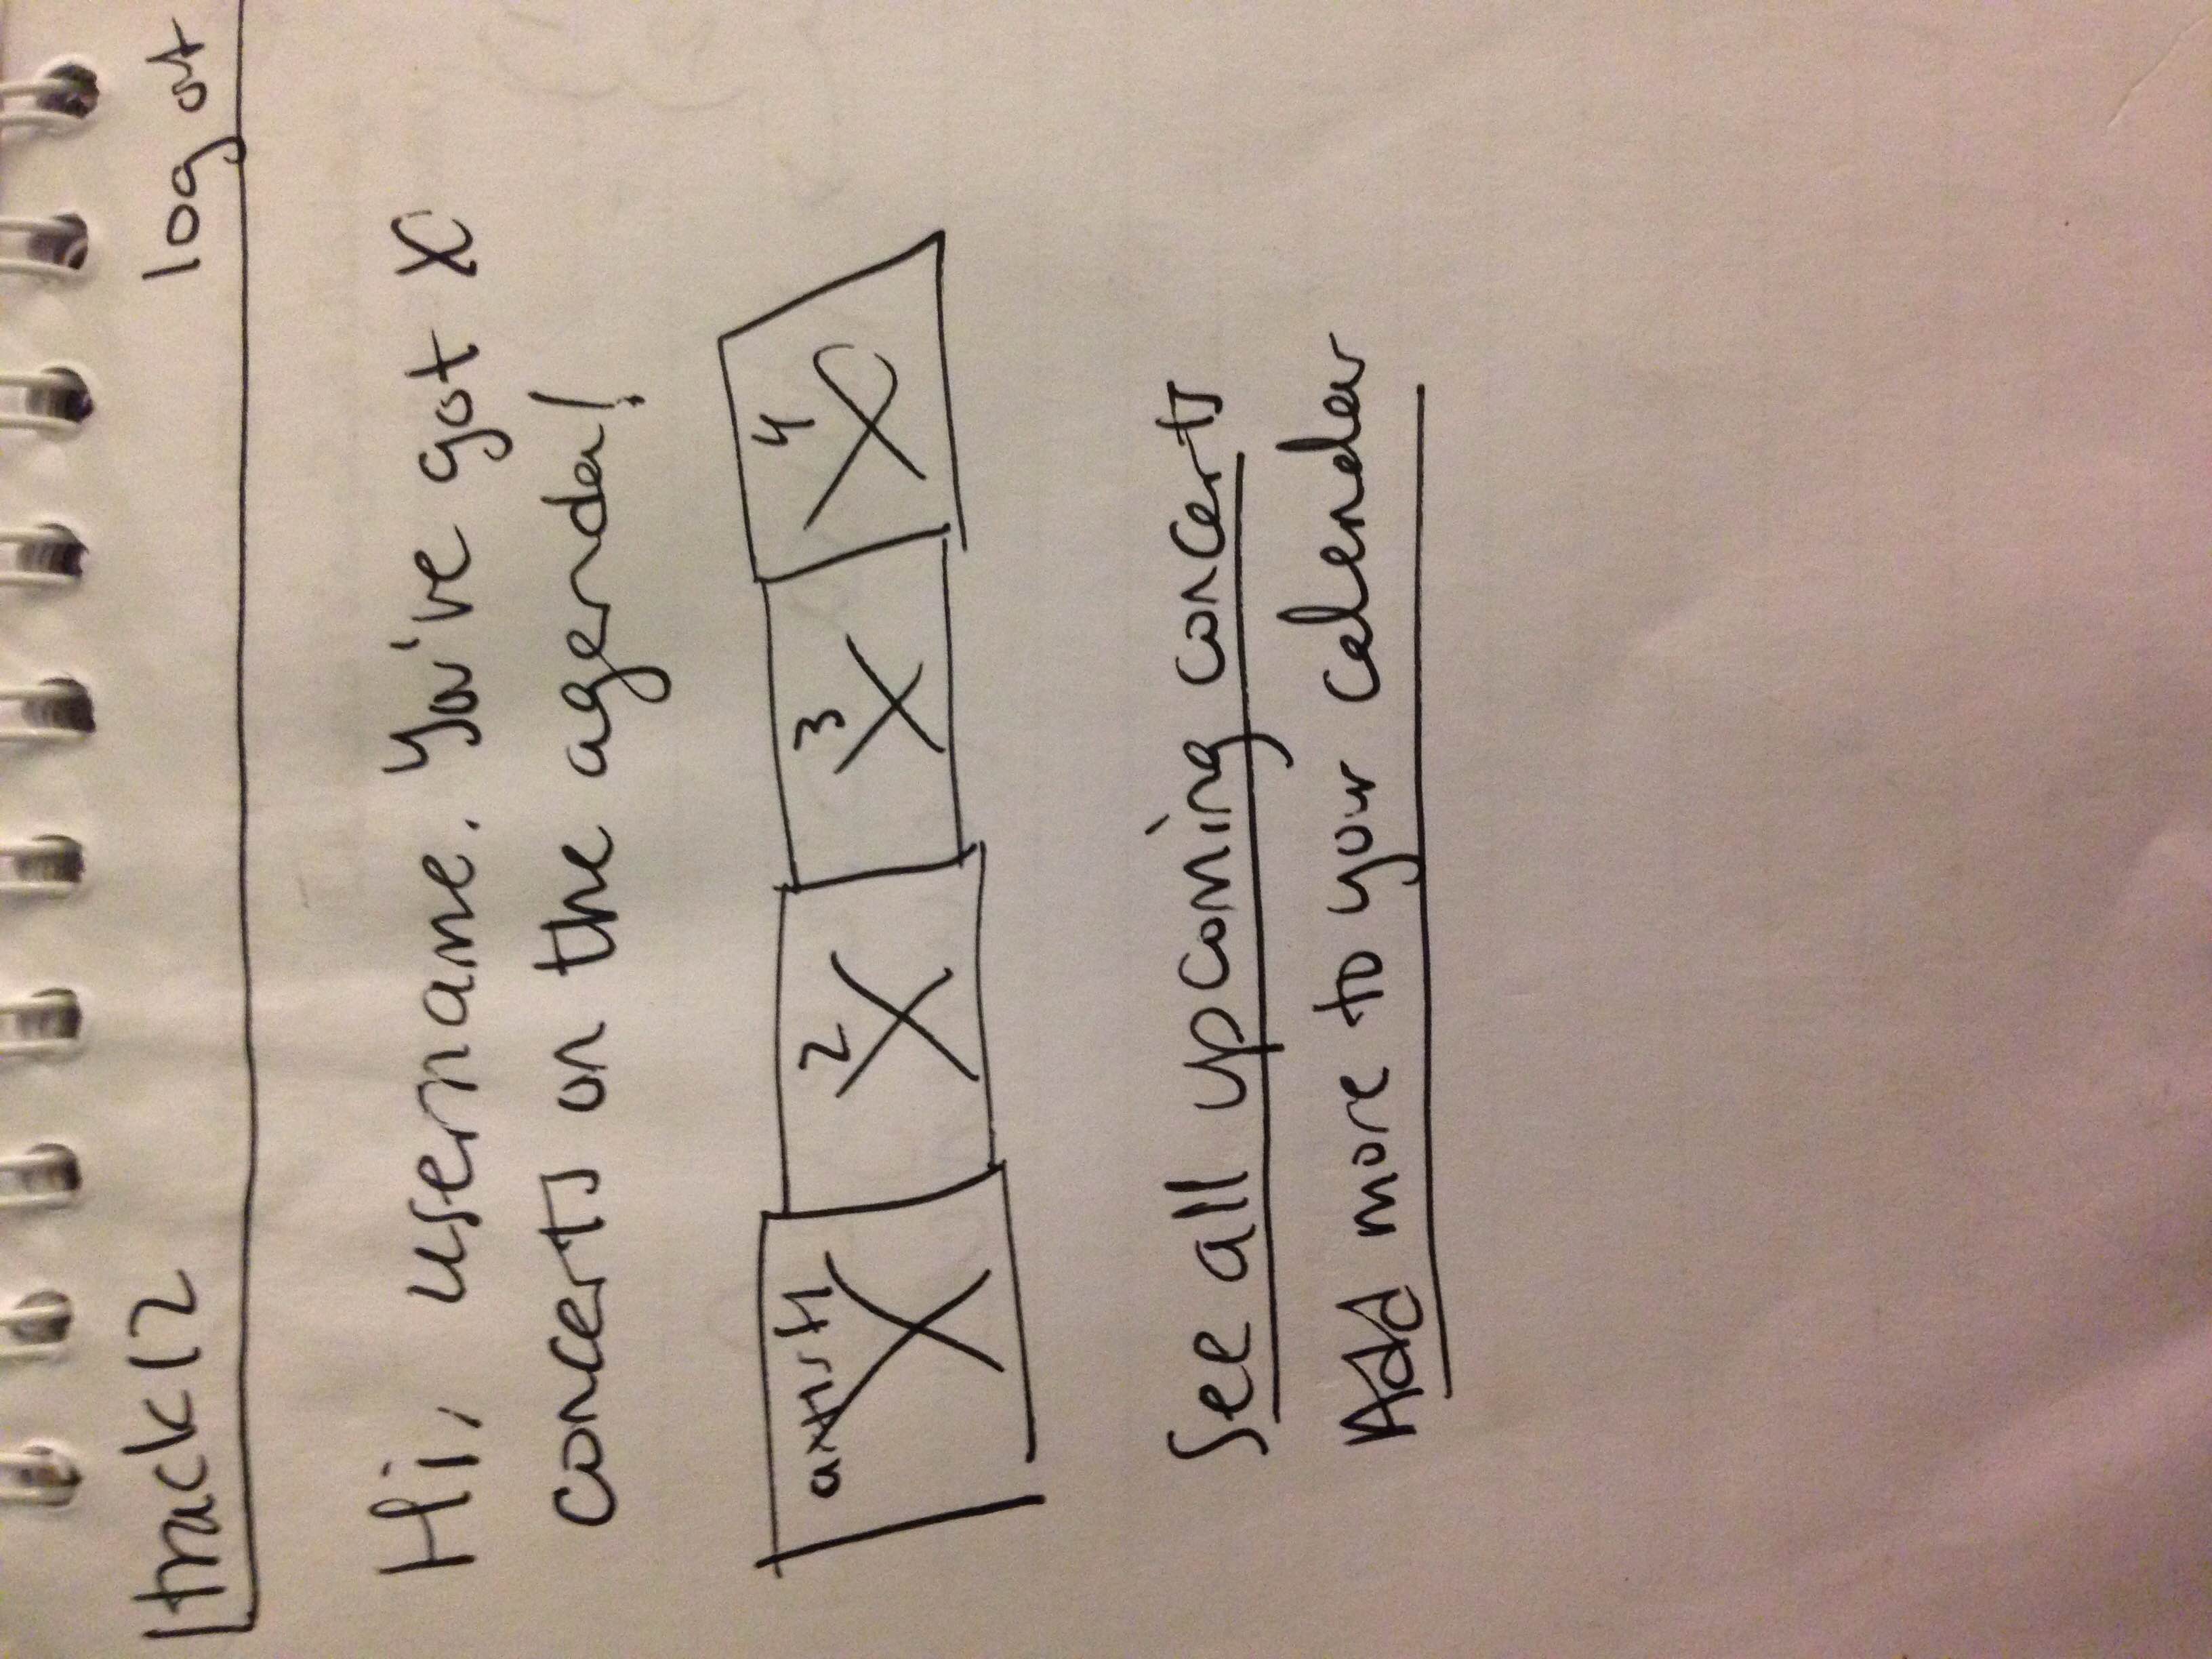 track12 log out
Hi, username. You've got X
concerts on the agenda!
artist1 2 3 4
See all upcoming concerts
Add more to your calendar